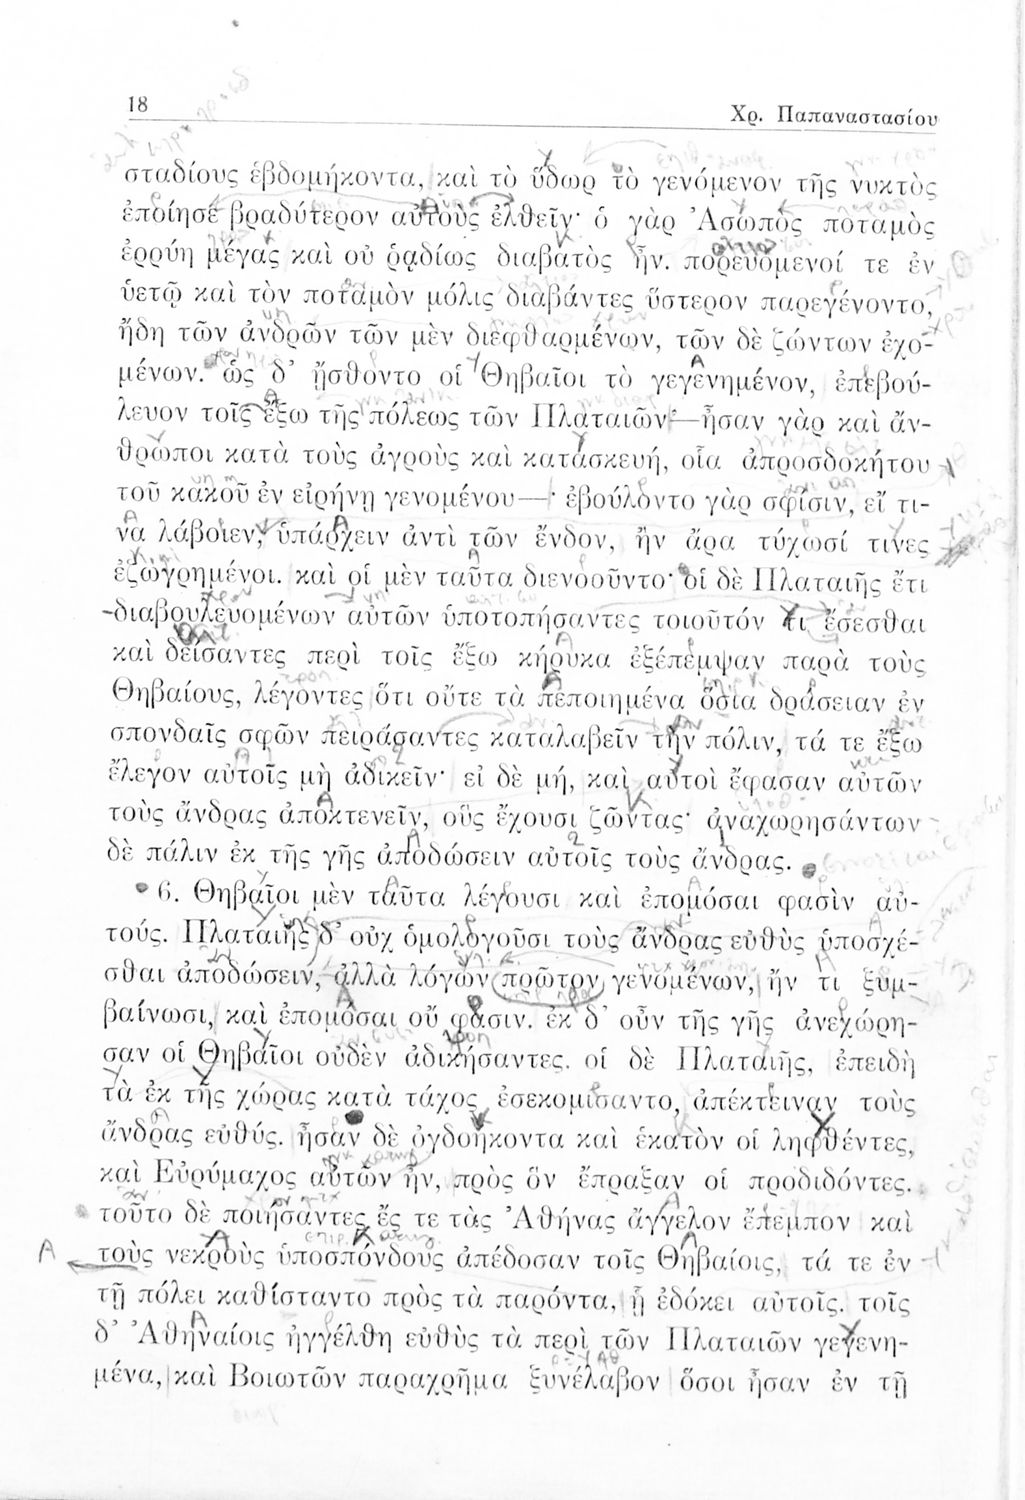 18
Χρ. Παπαναστασίου
σταδίους ἑβδομήκοντα, καὶ τὸ ὕδωρ τὸ γενόμενον τῆς νυκτὸς
ἐποίησε βραδύτερον αὐτοὺς ἐλθεῖν· ὁ γὰρ Ἀσωπὸς ποταμὸς
ἐρρύη μέγας καὶ οὐ ῥᾳδίως διαβατὸς ἦν. πορευόμενοί τε ἐν
ὑετῷ καὶ τὸν ποταμὸν μόλις διαβάντες ὕστερον παρεγένοντο,
ἤδη τῶν ἀνδρῶν τῶν μὲν διεφθαρμένων, τῶν δὲ ζώντων ἐχο-
μένων. ὡς δ᾽ ᾔσθοντο οἱ Θηβαῖοι τὸ γεγενημένον, ἐπεβού-
λευον τοῖς ἔξω τῆς πόλεως τῶν Πλαταιῶν·—ἦσαν γὰρ καὶ ἄν-
θρωποι κατὰ τοὺς ἀγροὺς καὶ κατασκευή, οἷα ἀπροσδοκήτου
τοῦ κακοῦ ἐν εἰρήνῃ γενομένου—· ἐβούλοντο γὰρ σφίσιν, εἴ τι-
να λάβοιεν, ὑπάρχειν ἀντὶ τῶν ἔνδον, ἢν ἄρα τύχωσί τινες
ἐζωγρημένοι. καὶ οἱ μὲν ταῦτα διενοοῦντο· οἱ δὲ Πλαταιῆς ἔτι
διαβουλευομένων αὐτῶν ὑποτοπήσαντες τοιοῦτόν τι ἔσεσθαι
καὶ δείσαντες περὶ τοῖς ἔξω κήρυκα ἐξέπεμψαν παρὰ τοὺς
Θηβαίους, λέγοντες ὅτι οὔτε τὰ πεποιημένα ὅσια δράσειαν ἐν
σπονδαῖς σφῶν πειράσαντες καταλαβεῖν τὴν πόλιν, τά τε ἔξω
ἔλεγον αὐτοῖς μὴ ἀδικεῖν· εἰ δὲ μή, καὶ αὐτοὶ ἔφασαν αὐτῶν
τοὺς ἄνδρας ἀποκτενεῖν, οὓς ἔχουσι ζῶντας· ἀναχωρησάντων
δὲ πάλιν ἐκ τῆς γῆς ἀποδώσειν αὐτοῖς τοὺς ἄνδρας.
6. Θηβαῖοι μὲν ταῦτα λέγουσι καὶ ἐπομόσαι φασὶν αὐ-
τούς. Πλαταιῆς δ᾽ οὐχ ὁμολογοῦσι τοὺς ἄνδρας εὐθὺς ὑποσχέ-
σθαι ἀποδώσειν, ἀλλὰ λόγων πρῶτον γενομένων, ἤν τι ξυμ-
βαίνωσι, καὶ ἐπομόσαι οὔ φασιν. ἐκ δ᾽ οὖν τῆς γῆς ἀνεχώρη-
σαν οἱ Θηβαῖοι οὐδὲν ἀδικήσαντες. οἱ δὲ Πλαταιῆς, ἐπειδὴ
τὰ ἐκ τῆς χώρας κατὰ τάχος ἐσεκομίσαντο, ἀπέκτειναν τοὺς
ἄνδρας εὐθύς. ἦσαν δὲ ὀγδοήκοντα καὶ ἑκατὸν οἱ ληφθέντες,
καὶ Εὐρύμαχος αὐτῶν ἦν, πρὸς ὃν ἔπραξαν οἱ προδιδόντες.
τοῦτο δὲ ποιήσαντες ἔς τε τὰς Ἀθήνας ἄγγελον ἔπεμπον καὶ
τοὺς νεκροὺς ὑποσπόνδους ἀπέδοσαν τοῖς Θηβαίοις, τά τε ἐν
τῇ πόλει καθίσταντο πρὸς τὰ παρόντα, ᾗ ἐδόκει αὐτοῖς. τοῖς
δ᾽ Ἀθηναίοις ἠγγέλθη εὐθὺς τὰ περὶ τῶν Πλαταιῶν γεγενη-
μένα, καὶ Βοιωτῶν παραχρῆμα ξυνέλαβον ὅσοι ἦσαν ἐν τῇ